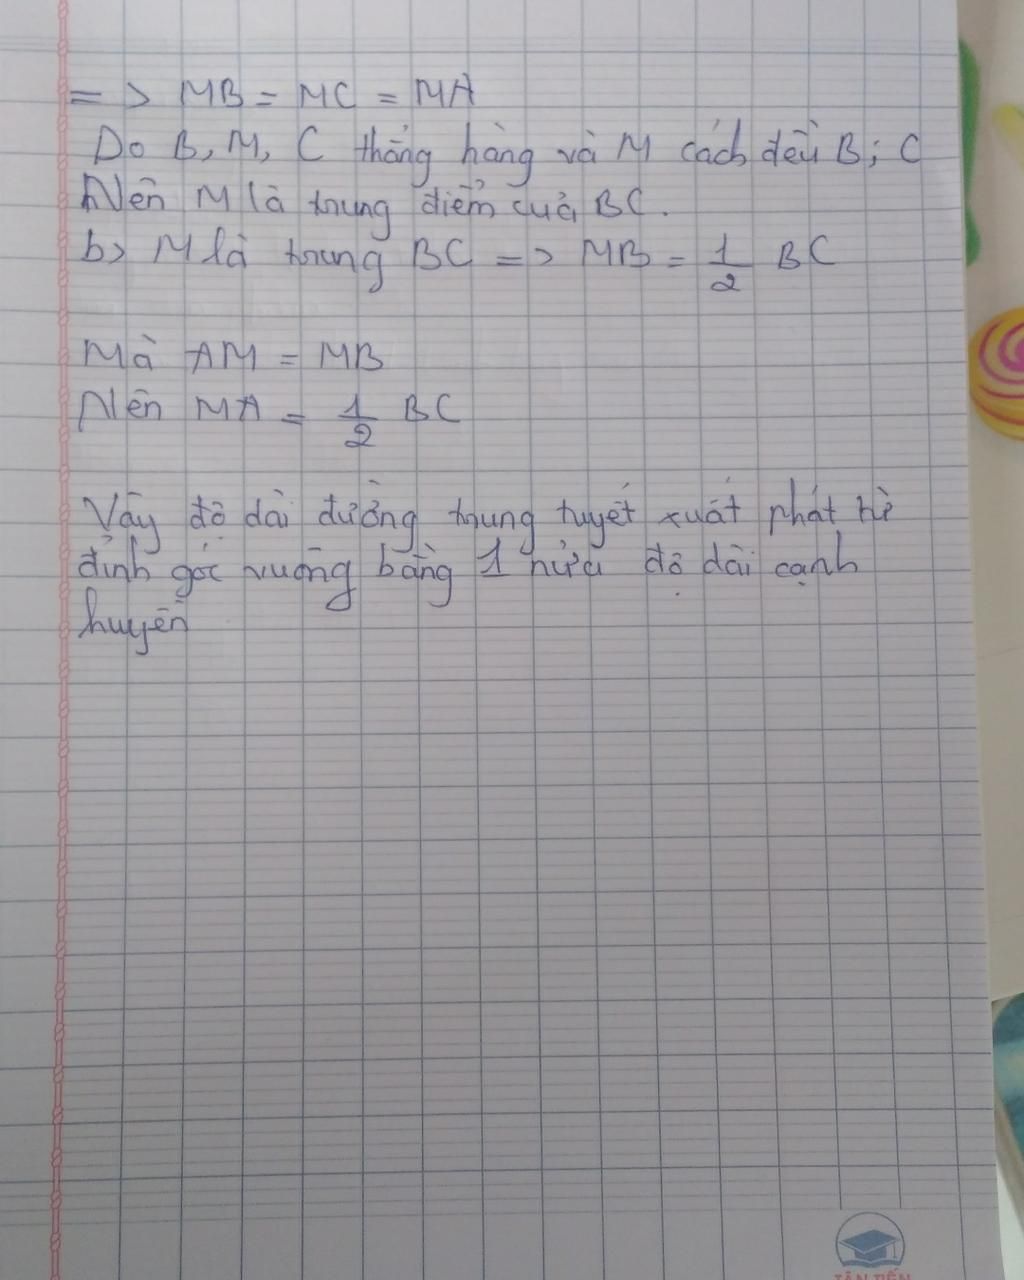 => MB = MC = MA
Do B, M, C thẳng hàng và M cách đều B; C
Nên M là trung điểm của BC.
b> M là trung BC => MB = 1/2 BC
Mà AM = MB
Nên MA = 1/2 BC
Vậy độ dài đường trung tuyết xuất phát từ
đỉnh góc vuông bằng 1 nửa độ dài cạnh
huyền